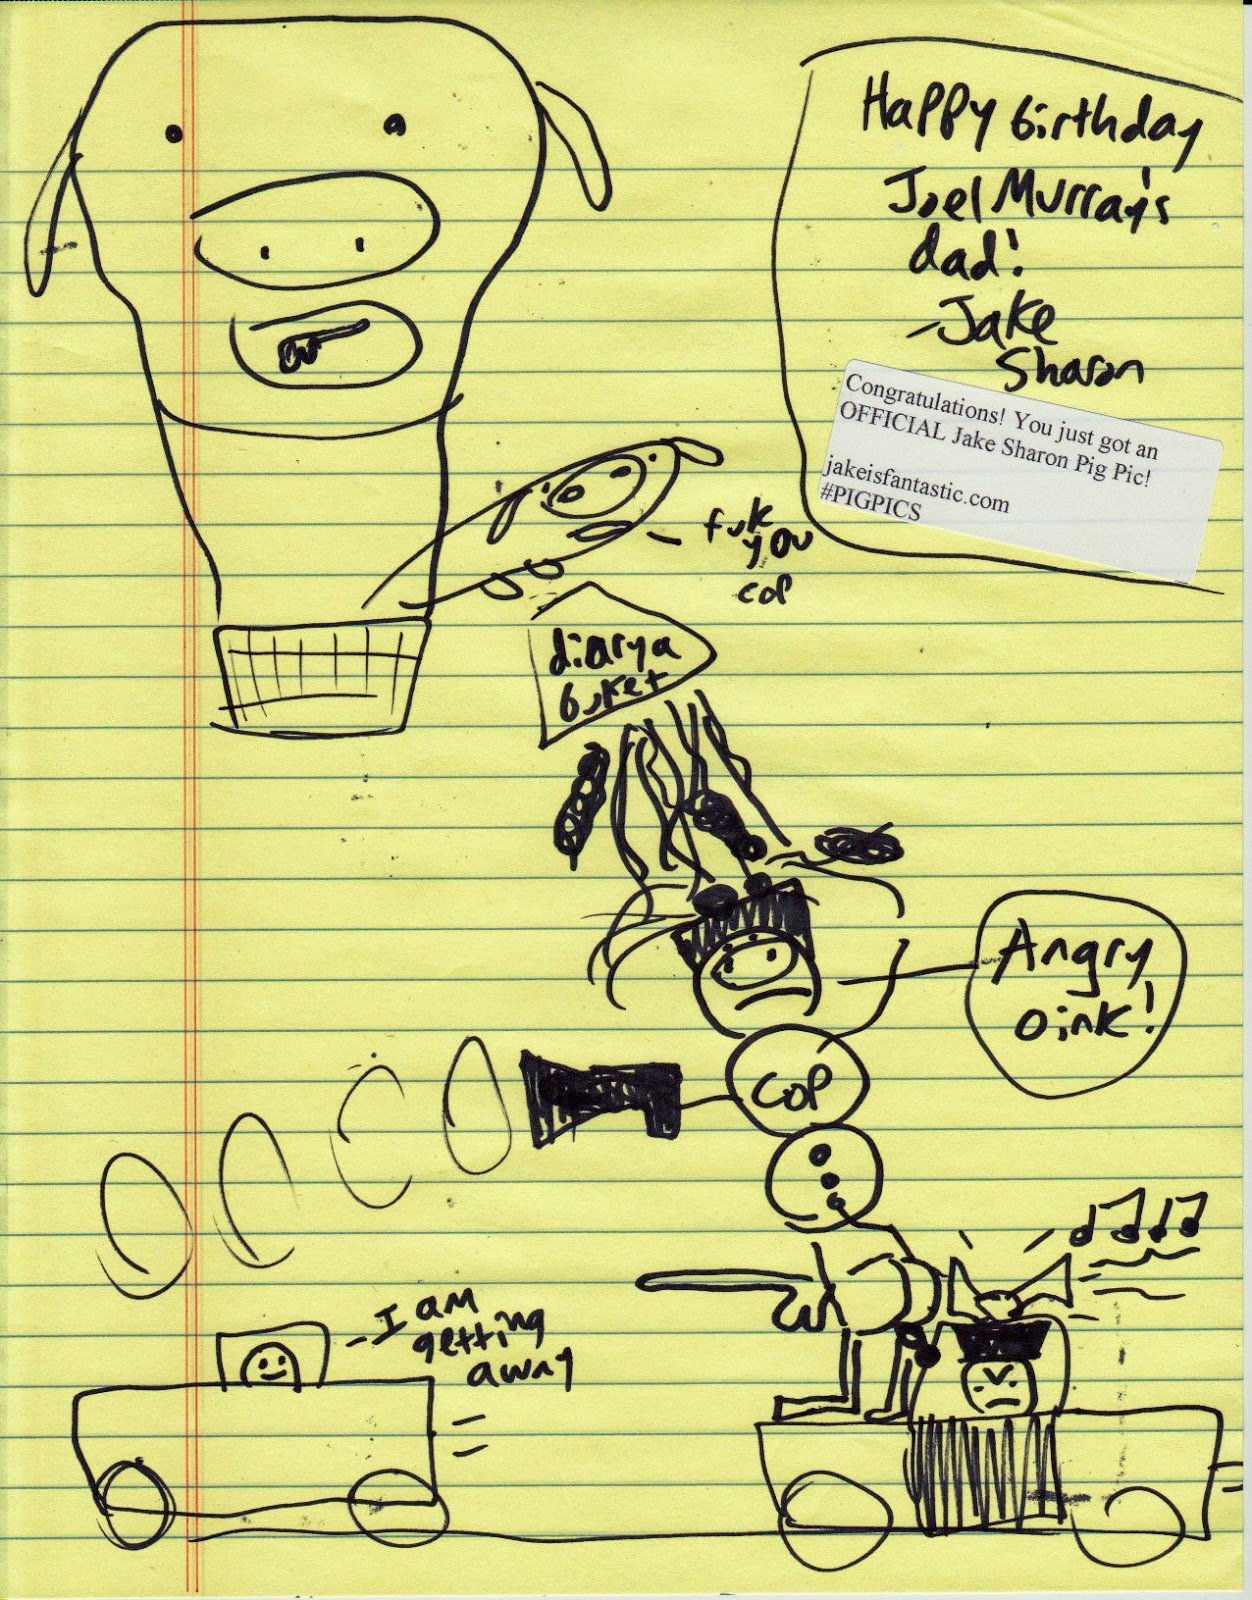 Happy birthday
Joel Murray's
dad!
-Jake
Sharon
Congratulations! You just got an
OFFICIAL Jake Sharon Pig Pic!
jakeisfantastic.com
#PIGPICS
fuk
you
cop
diarya
buket
Angry
oink!
COP
I am
getting
away